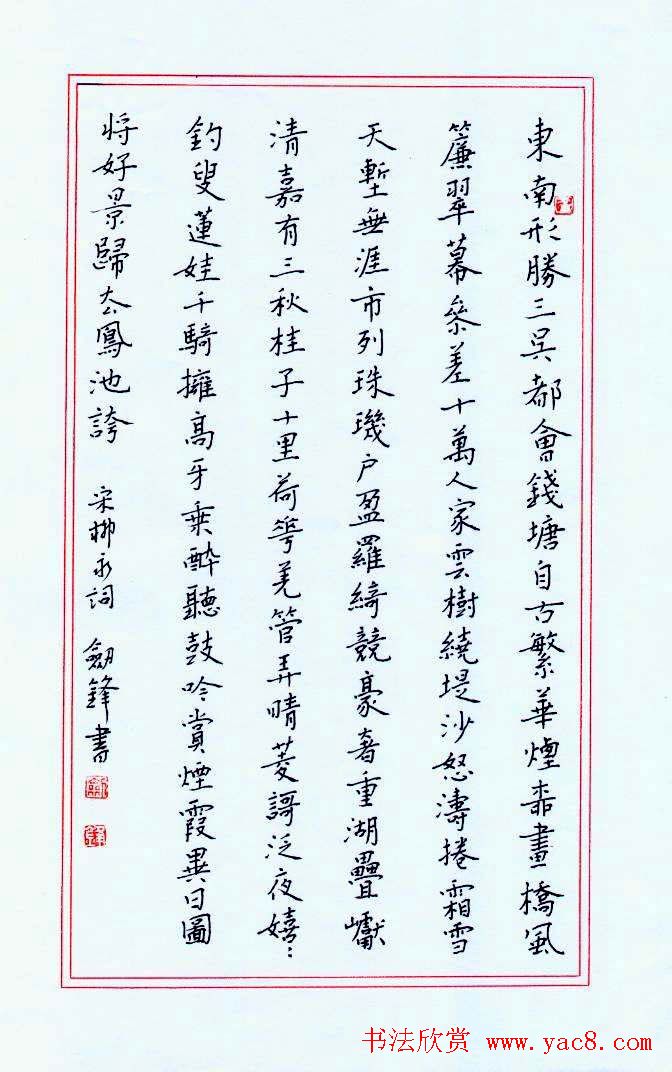 東南形勝三吳都會錢塘自古繁華煙柳畫橋風
簾翠幕參差十萬人家雲樹繞堤沙怒濤捲霜雪
天塹無涯市列珠璣户盈羅綺競豪奢重湖疊巘
清嘉有三秋桂子十里荷花羌管弄晴菱謌泛夜嬉〻
釣叟蓮娃千騎擁高牙乘醉聽鼓吟賞煙霞異日圖
將好景歸去鳳池誇 宋柳永詞 劍鋒書
书法欣赏 www.yac8.com